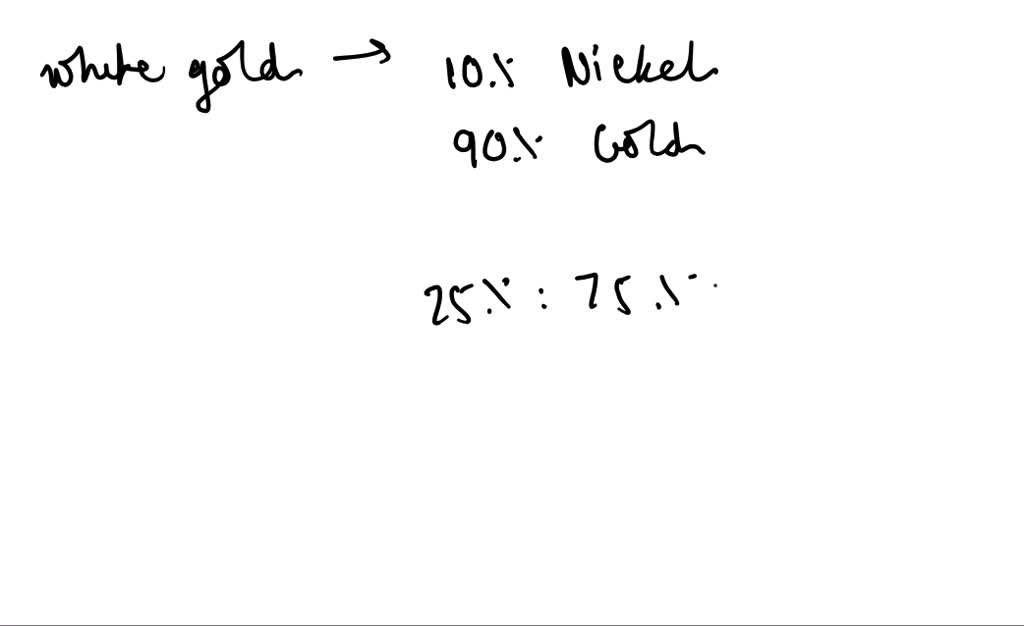 white gold → 10% Nickel
90% Gold
25% : 75%